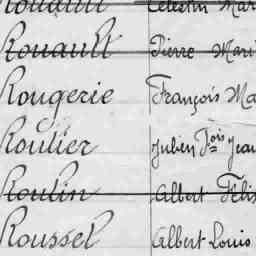 Rouault Célestin Mar
Rouault Pierre Mari
Rougerie François Ma
Roulier Julien Fois Jean
Roulin Albert Féli
Roussel Albert Louis